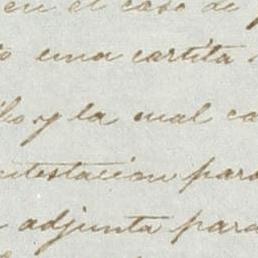 en el caso de
una cartita
y la cual ca
ntestacion para
adjunta para